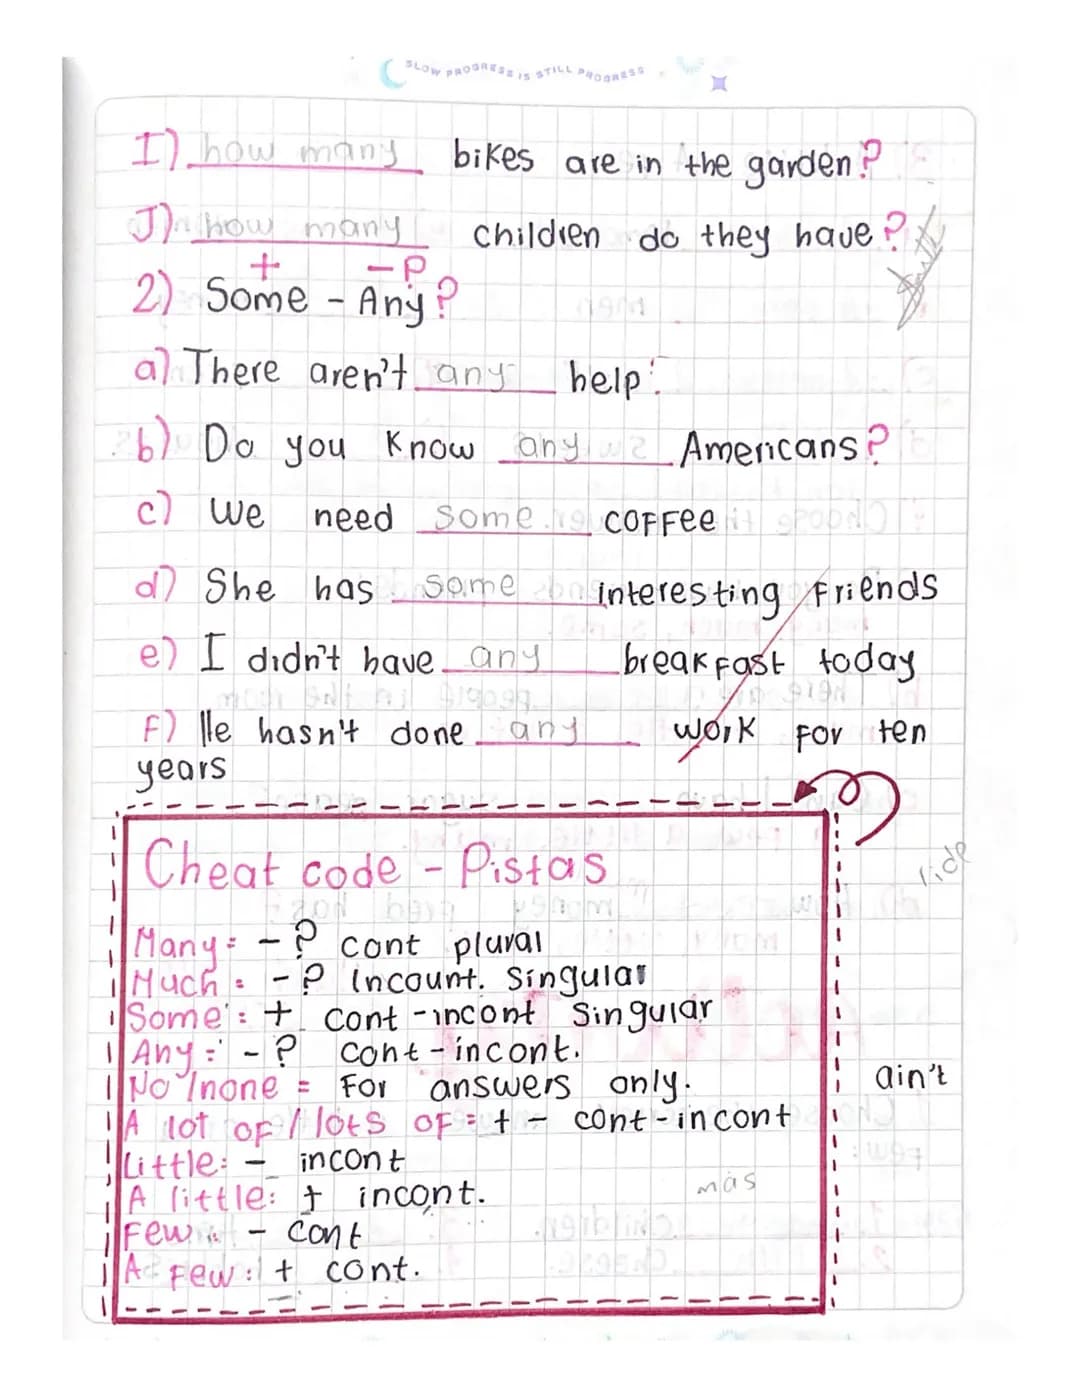 SLOW PROGRESS IS STILL PROGRESS
I) how many bikes are in the garden?
J) how many children do they have?
+ - ?
2) Some - Any?
a) There aren't any help.
b) Do you know any Americans?
c) We need some coffee
d) She has some interesting friends
e) I didn't have any breakfast today
F) He hasn't done any work for ten
years
Cheat code - Pistas
ride
Many: - ? cont plural
Much: - ? Incount. Singular
Some: + cont-incont Singular
Any: - ? cont-incont.
No/none = For answers only.
ain't
A lot of / lots of = + - cont-incont
Little: - incont
A little: + incont.
más
Few: - cont
A Few: + cont.